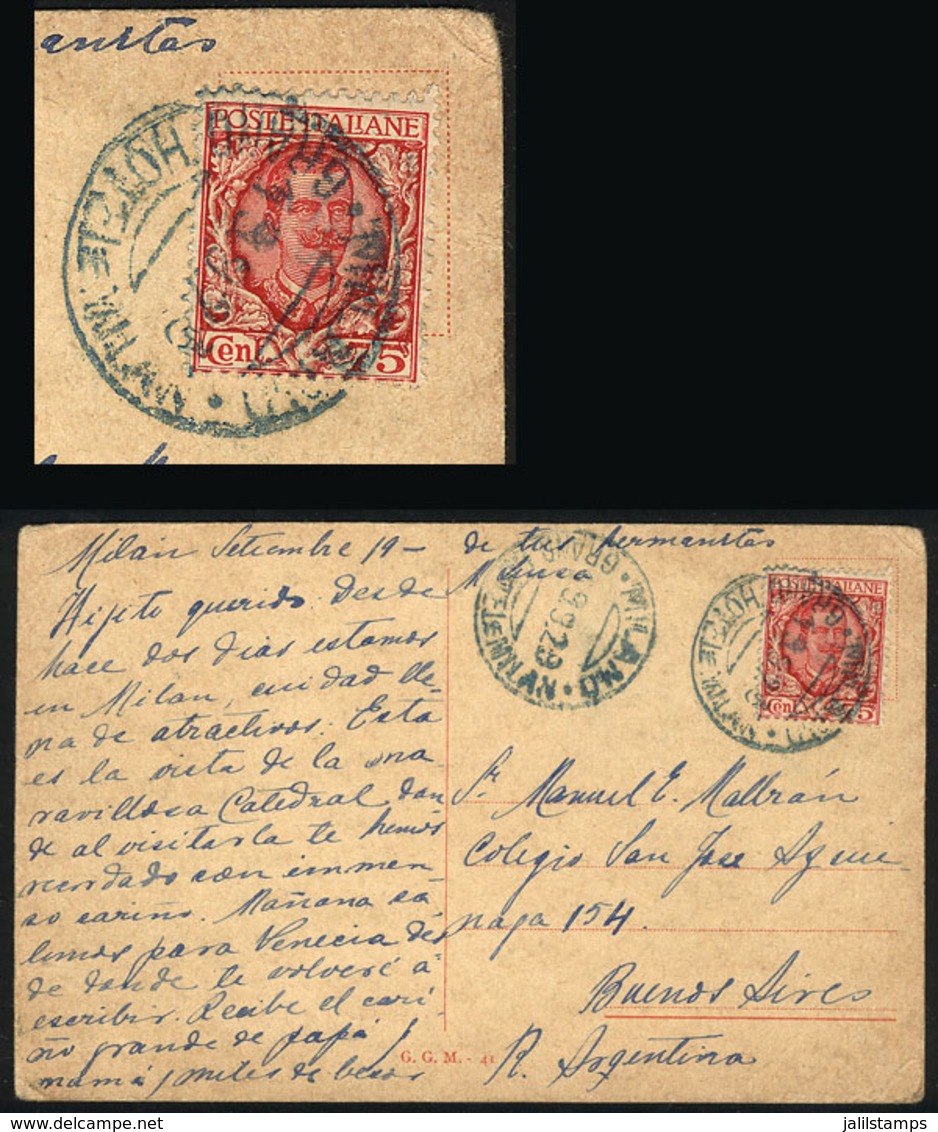 anitas
POSTE ITALIANE
Cent 75
Milán Setiembre 19-
Hijito querido. Desde
hace dos días estamos
en Milan, ciudad lle-
na de atractivos. Esta
es la vista de la ma-
ravillosa Catedral don
de al visitarla te hemos
recordado con inmen-
so cariño. Mañana sa-
limos para Venecia des
de donde te volveré a-
escribir. Recibe el cari
ño grande de papá y
mamá y miles de besos
de tus hermanitas
MILANO
19.9.29
POSTE ITALIANE
Cent 75
Sr. Manuel E. Mallrán
Colegio San Jose Azcue
naga 154.
Buenos Aires
R. Argentina
G. G. M. - 41
jalilstamps